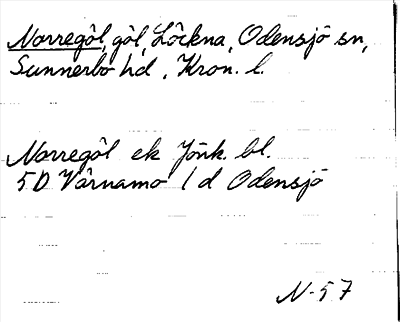 Norregöl, göl, Löckna, Odensjö sn,
Sunnerbo hd, Kron. l.
Norregöl ek Jönk. bl.
5D Värnamo 1d Odensjö
N-57